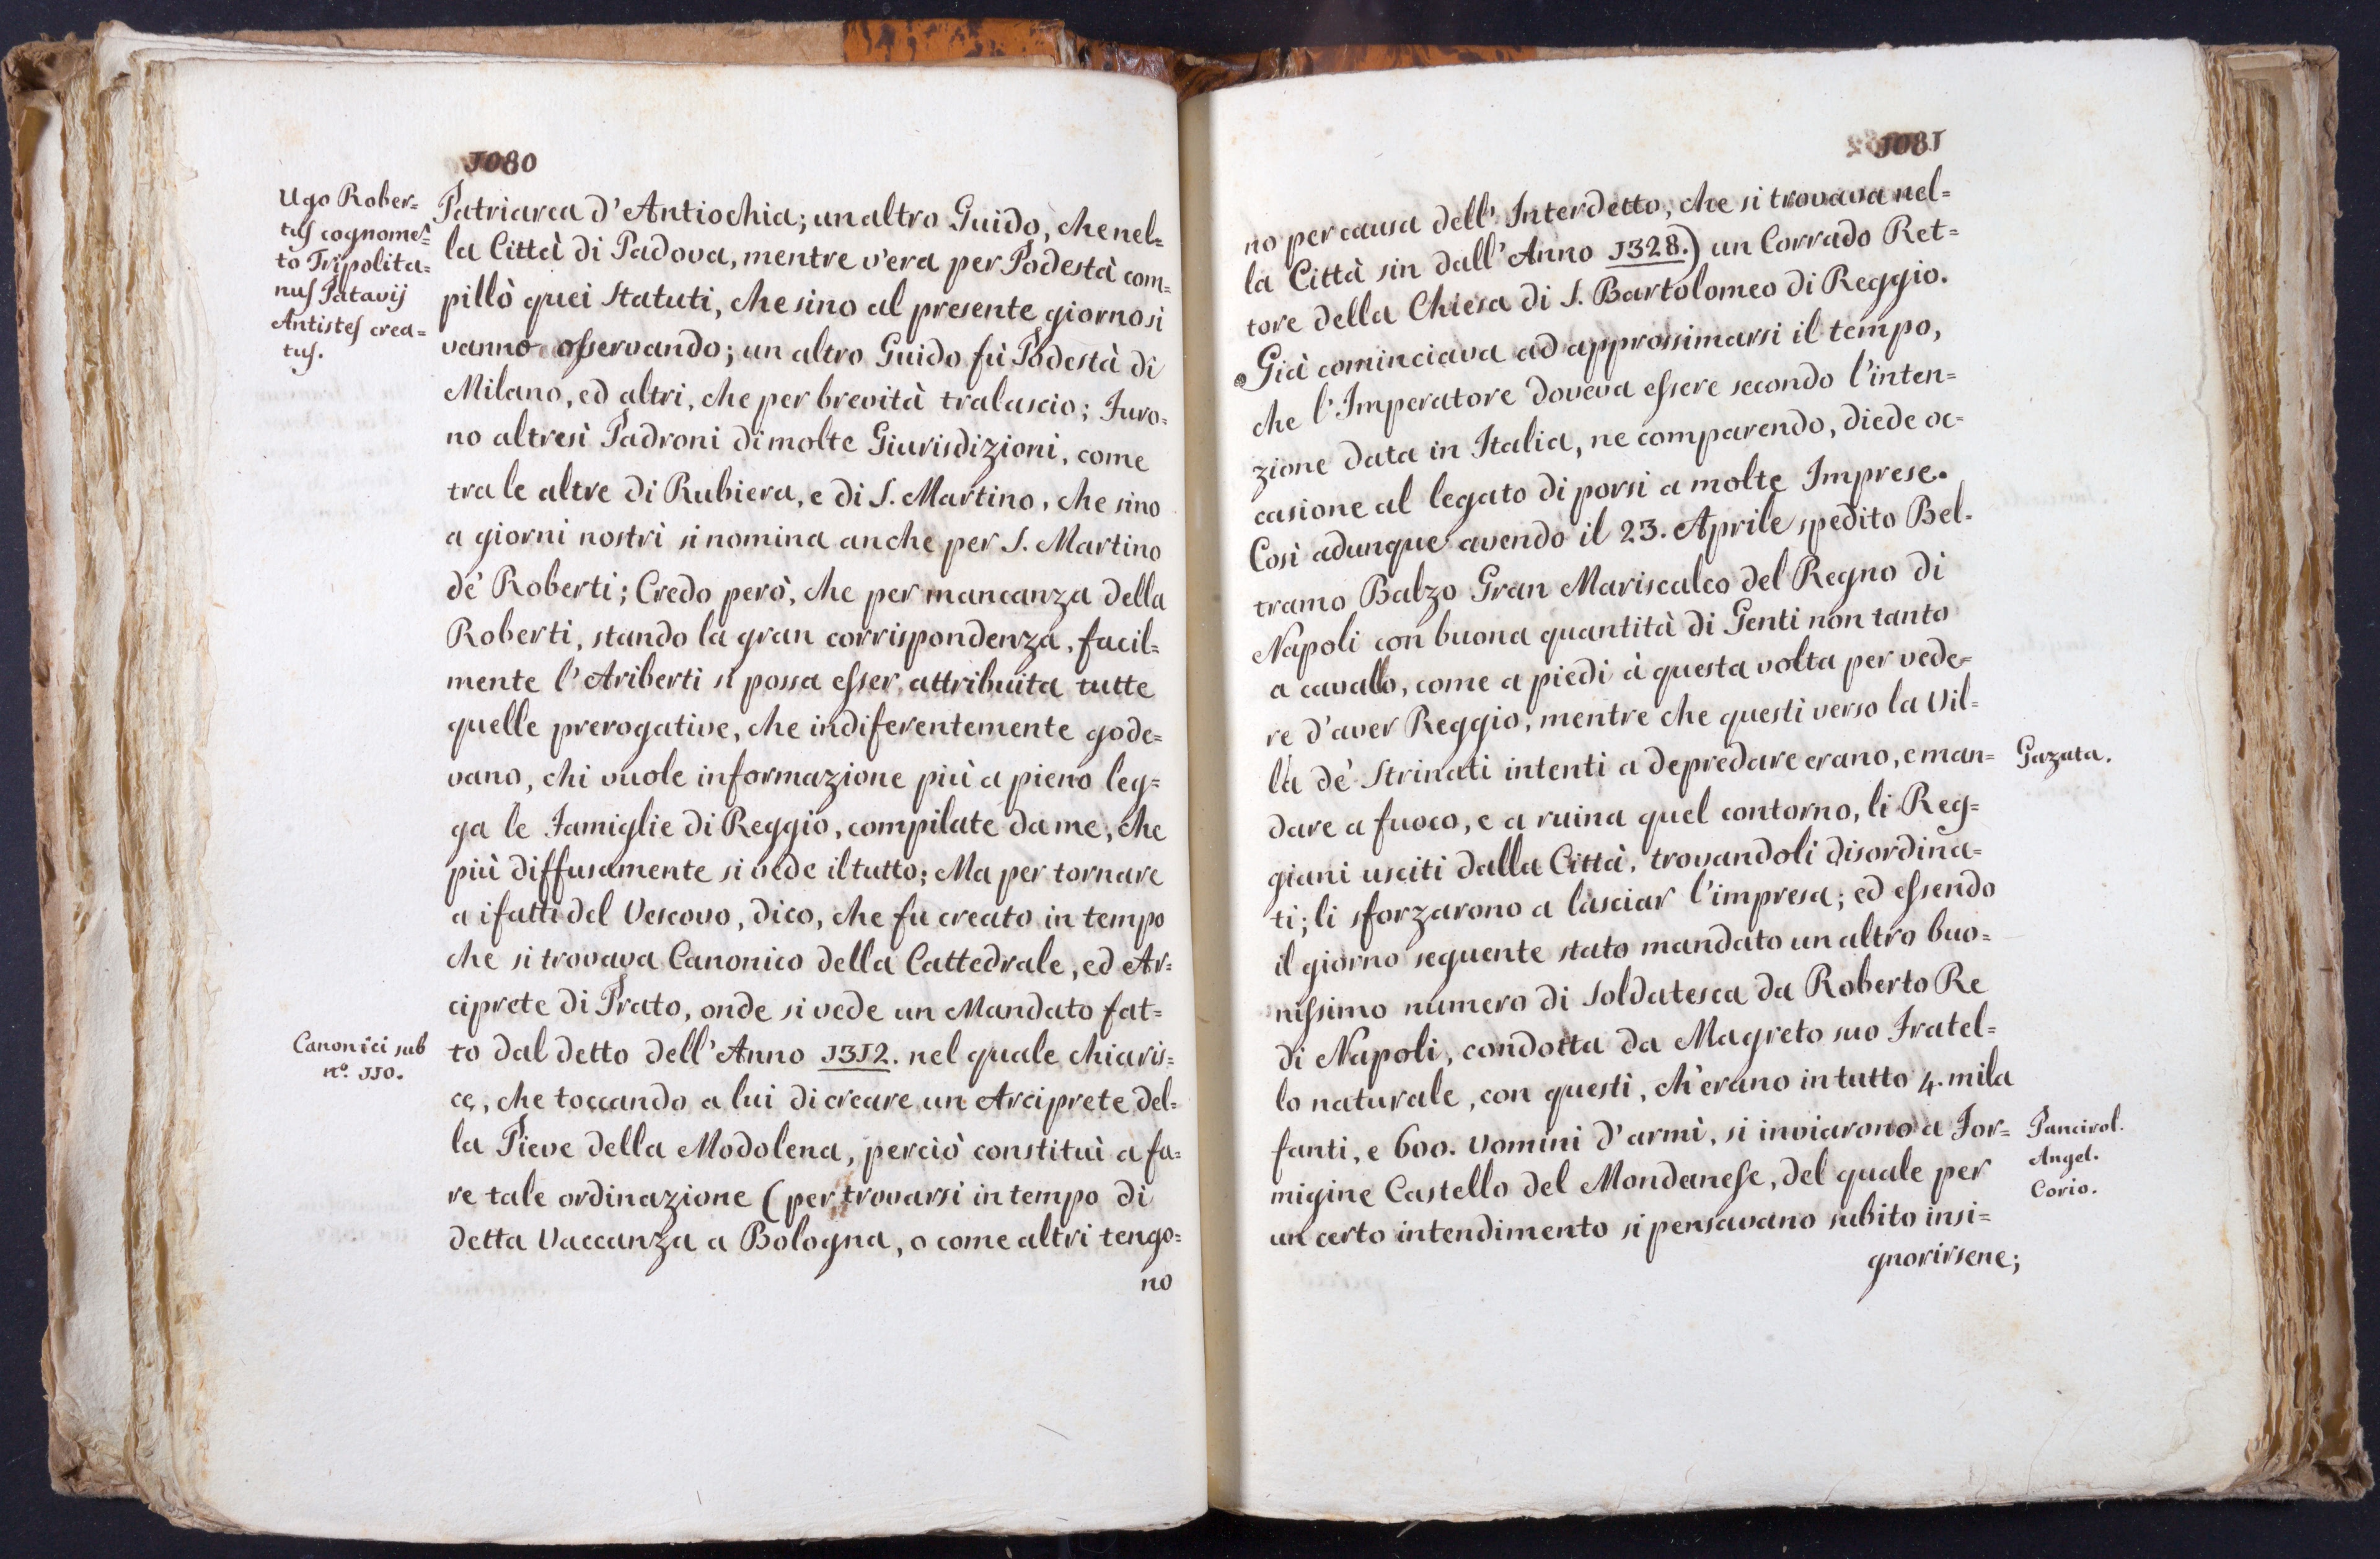 1080
Ugo Rober=
tus cognome~=
to Tripolita=
nus Patavij
Antistes crea=
tus.
Patriarca d'Antiochia; un altro Guido, che nel=
la Città di Padova, mentre v'era per Podestà com=
pillò quei Statuti, che sino al presente giorno si
vanno osservando; un altro Guido fù Podestà di
Milano, ed altri, che per brevità tralascio; Furo=
no altresì Padroni di molte Giurisdizioni, come
tra le altre di Rubiera, e di S. Martino, che sino
a giorni nostri si nomina anche per S. Martino
de' Roberti; Credo però, che per mancanza della
Roberti, stando la gran corrispondenza, facil=
mente l'Ariberti si possa esser attribuita tutte
quelle prerogative, che indiferentemente gode=
vano, chi vuole informazione più a pieno leg=
ga le Famiglie di Reggio, compilate da me, che
più diffusamente si vede il tutto; Ma per tornare
a i fatti del Vescovo, dico, che fu creato in tempo
che si trovava Canonico della Cattedrale, ed Ar=
ciprete di Prato, onde si vede un Mandato fat=
Canonici sub
n.º 110.
to dal detto dell'Anno 1312. nel quale chiaris=
ce, che toccando a lui di creare un Arciprete del=
la Pieve della Modolena, perciò constituì a fa=
re tale ordinazione (per trovarsi in tempo di
detta Vaccanza a Bologna, o come altri tengo=
no
1081
no per causa dell'Interdetto, che si trovava nel=
la Città sin dall'Anno 1328.) un Corrado Ret=
tore della Chiesa di S. Bartolomeo di Reggio.
Già cominciava ad approssimarsi il tempo,
che l'Imperatore doveva essere secondo l'inten=
zione data in Italia, ne comparendo, diede oc=
casione al legato di porsi a molte Imprese.
Così adunque avendo il 23. Aprile spedito Bel=
tramo Balzo Gran Mariscalco del Regno di
Napoli con buona quantità di Genti non tanto
a cavallo, come a piedi à questa volta per vede=
re d'aver Reggio, mentre che questi verso la Vil=
la de' Strinati intenti a depredare erano, e man=
Gazata.
dare a fuoco, e a ruina quel contorno, li Reg=
giani usciti dalla Città, trovandoli disordina=
ti; li sforzarono a lasciar l'impresa; ed essendo
il giorno seguente stato mandato un altro buo=
nissimo numero di Soldatesca da Roberto Re
di Napoli, condotta da Magreto suo Fratel=
lo naturale, con questi, ch'erano in tutto 4. mila
fanti, e 600. Uomini d'armi, si inviarono a For=
Pancirol.
Angel.
Corio.
migine Castello del Mondanese, del quale per
un certo intendimento si pensavano subito insi=
gnorirsene;